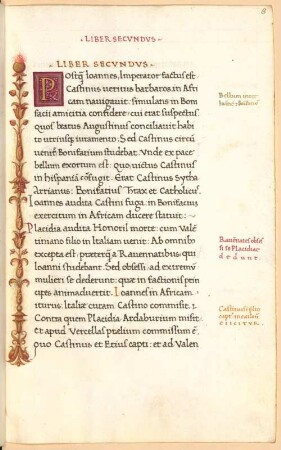 LIBER SECVNDVS
LIBER SECVNDVS.
Postq̃ Ioannes, Imperator factus est
Castinus ueritus barbaros in Afri
cam nauigauit: simulans in Boni
facii amicitia confidere: cui erat suspectus.
Quos beatus Augustinus conciliauit habi
to utriusq; iuramento. Sed Castinus circũ
uenire Bonifarium studebat. Vnde ex pace
bellum exortum est: quo uictus Castinus
in hispania cõfugit. Erat Castinus Sytha
Arrianus: Bonifatius Trax et Catholicus
Ioannes audita Castini fuga, in Bonifaciu
exercitum in Africam ducere statuit:
Placidia audita Honorii morte: cum Vale
tiniano filio in Italiam uenit. Ab omnibo
excepta est: præterq̃ a Rauennatibus qui
Ioanni studebant. Sed obsessi: ad extremũ
mulieri se dederunt: quæ in factionis prin
cipes animaduertit. Ioannes in Africam
iturus: Italiæ curam Castino commisit:
Contra quem Placidia Ardaburium misit
et apud Vercellas prelium commissum ẽ:
quo Castinus et Etius capti: et ad Valen
Rauennates obses
si se Placidiae
dedunt.